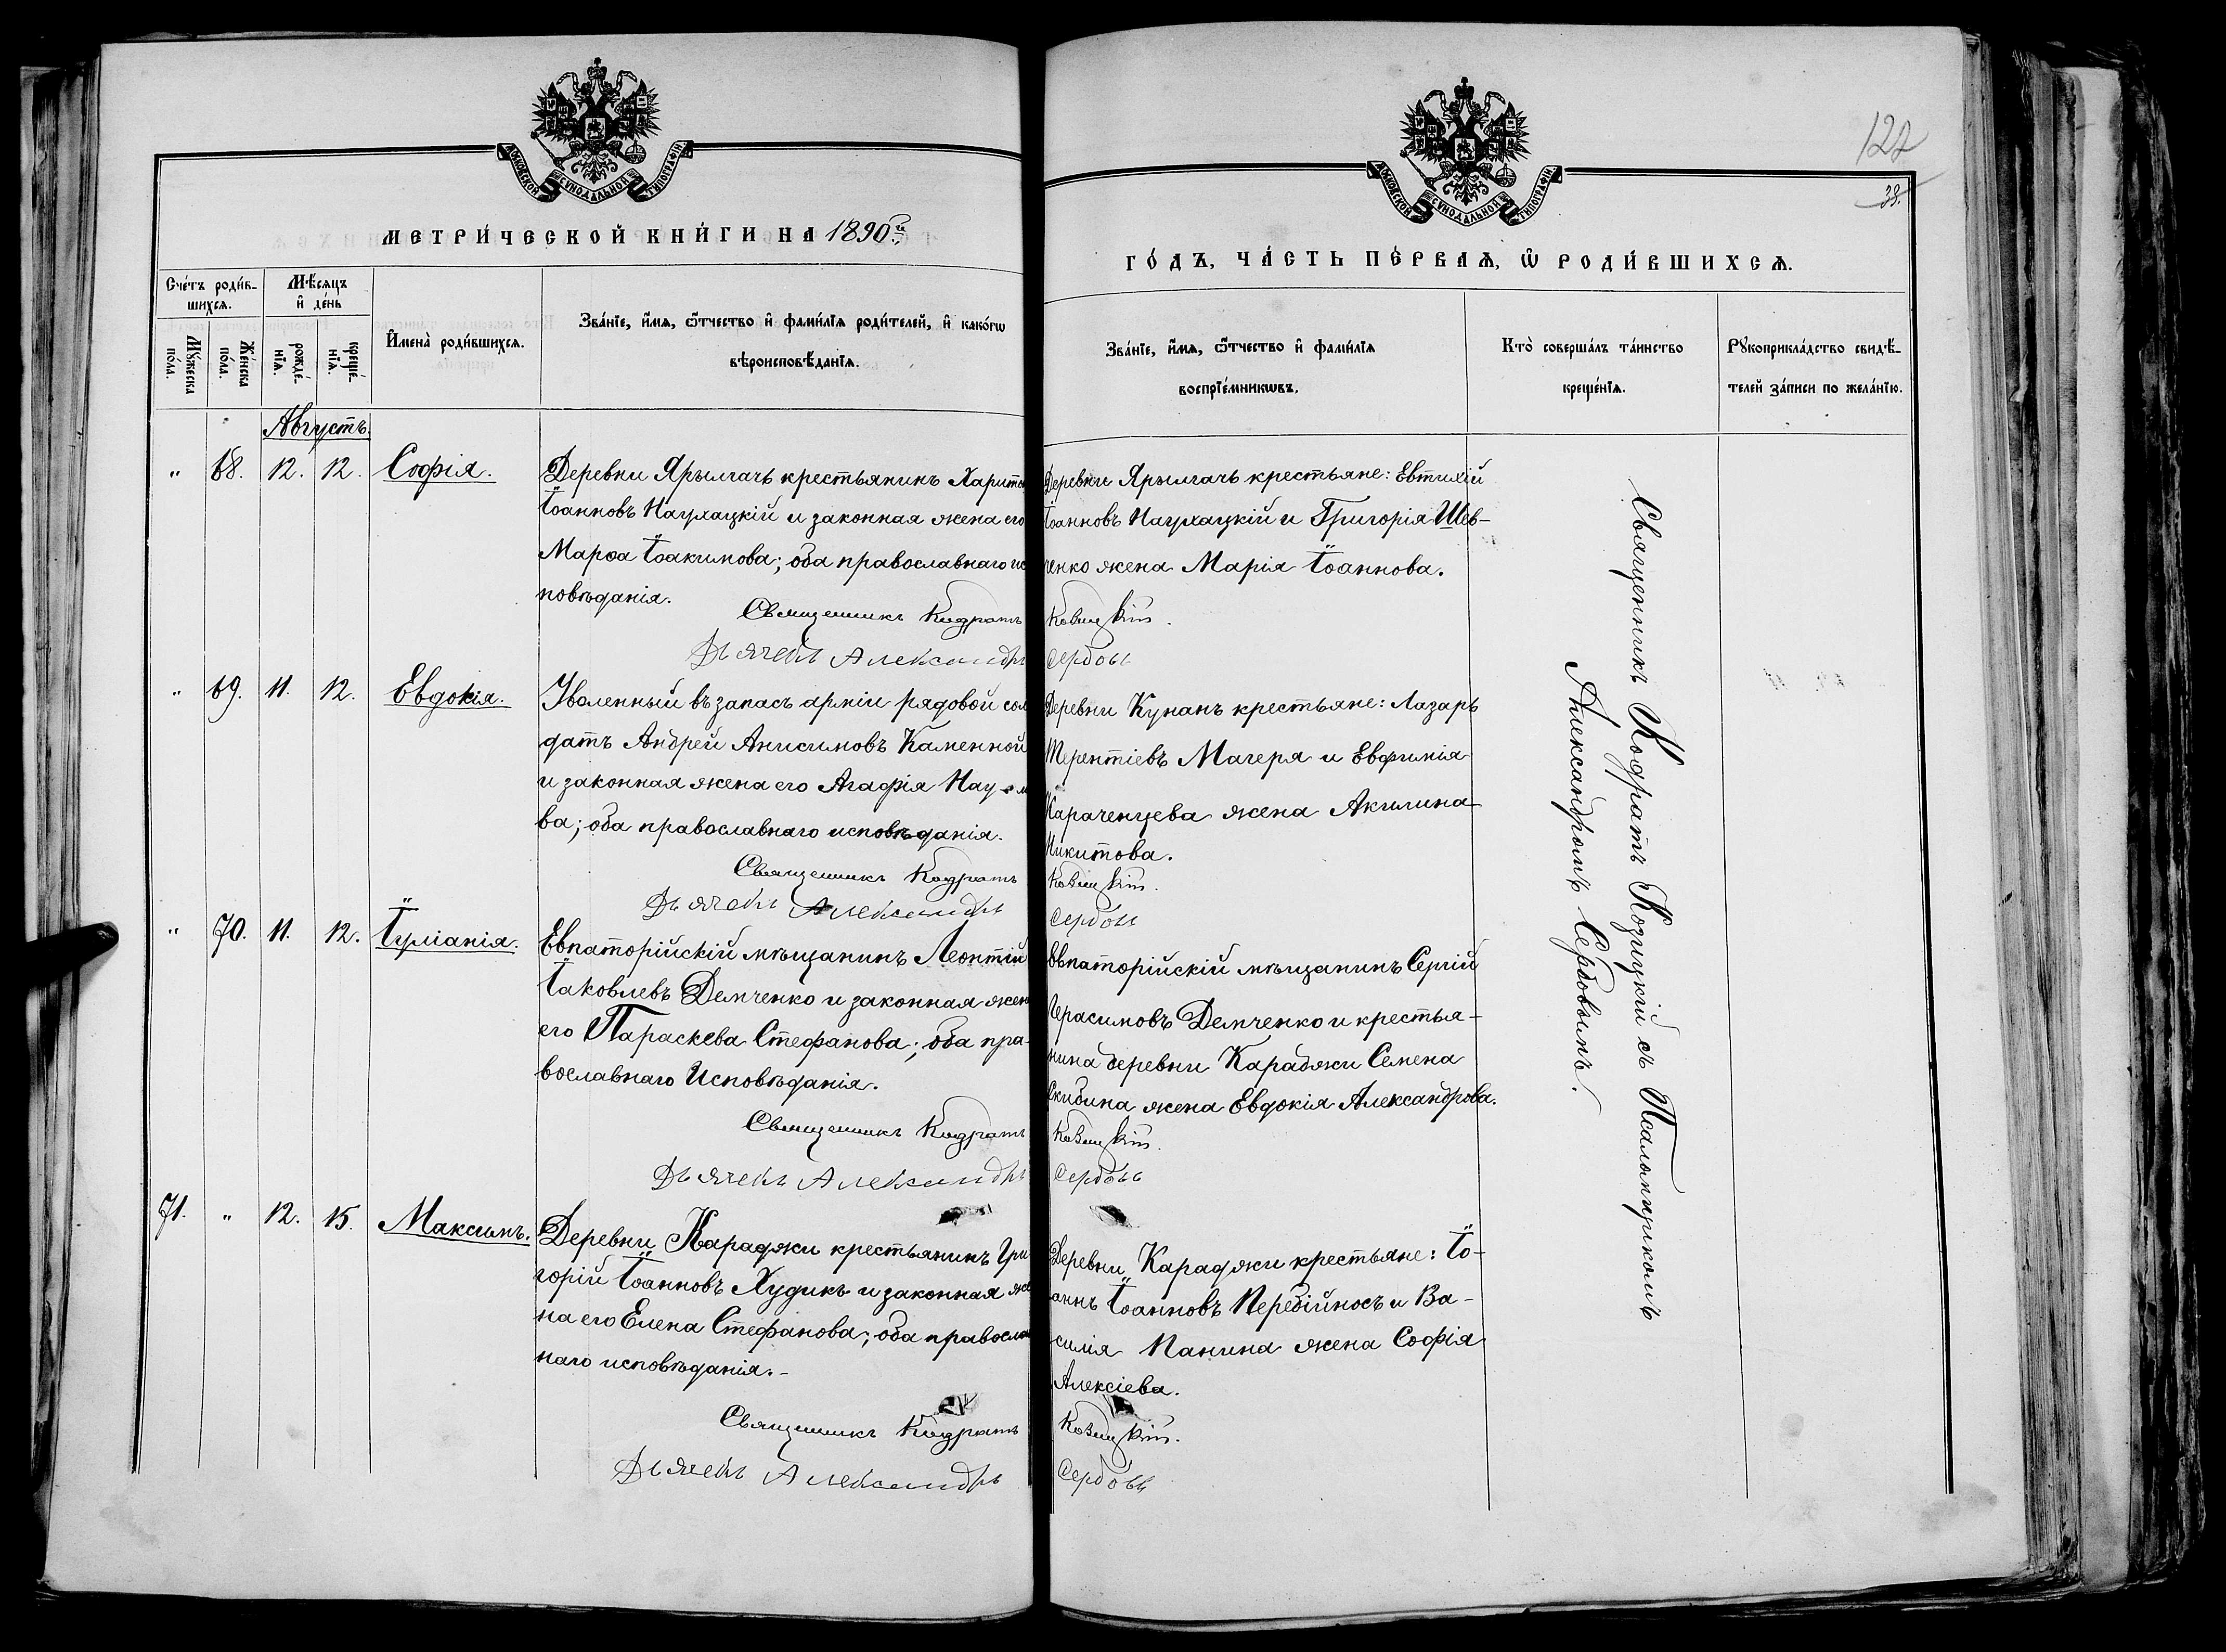 МОСКОВСКОЙ СѴНОДАЛЬНОЙ ТИПОГРАФІИ
МЕТРИ́ЧЕСКОЙ КНИ́ГИ НА 1890й
Сче́тъ роди́в-
шихсѧ.
Мѣ́сѧцъ
и҆ де́нь
Мꙋ́жеска
по́ла.
Же́нска
по́ла.
рожде́-
нїѧ.
креще́-
нїѧ.
И҆мена̀ роди́вшихсѧ.
Зва́нїе, и҆́мѧ, ѻ҆́тчество и҆ фами́лїѧ роди́телей, и҆ како́гѡ
вѣроисповѣ́данїѧ.
Августъ.
" 68. 12. 12. Софія.
Деревни Ярылгачъ крестьянинъ
Іоанновъ Наухацкій и законная жена его
Марѳа Іоакимова; оба православнаго ис
повѣданія.
Священникъ Кодратъ
Дьячекъ Александръ
" 69. 11. 12. Евдокія.
Уволенный въ запасъ арміи рядовой сол
датъ Андрей Анисимовъ Каменной
и законная жена его Агафія
ва; оба православнаго исповѣданія.
Священникъ Кодратъ
Дьячекъ Александръ
" 70. 11. 12. Іуліанія.
Евпаторійскій мѣщанинъ Леонтій
Іаковлевъ Демченко и законная жен
его Параскева Стефанова; оба пра-
вославнаго Исповѣданія.
Священникъ Кодратъ
Дьячекъ Александръ
71. " 12. 15. Максимъ.
Деревни Караджи крестьянинъ Гри
горій Іоанновъ Худикъ и законная же
на его Елена Стефанова; оба православ
наго исповѣданія.-
Священникъ Кодратъ
Дьячекъ Александръ
122
39.
МОСКОВСКОЙ СѴНОДАЛЬНОЙ ТИПОГРАФІИ
ГО́ДЪ, ЧА́СТЬ ПЕ́РВАѦ, Ѡ҆ РОДИ́ВШИХСѦ.
Зва́нїе, и҆́мѧ, ѻ҆́тчество и҆ фами́лїѧ
воспрїе́мникѡвъ.
Кто̀ соверша́лъ та́инство
креще́нїѧ.
Рꙋкоприкла́дство свидѣ́-
телей за́писи по жела́нїю.
Деревни Ярылгачъ крестьяне: Евтихій
Іоанновъ Наухацкій и Григорія Шев-
ченко жена Марія Іоаннова.
Сербовъ
Деревни Кунанъ крестьяне: Лазарь
Терентіевъ Магеря и Евфимія
Караченцева жена Акилина
Никитова.
Сербовъ
Евпаторійскій мѣщанинъ Сергій
Герасимовъ Демченко и крестья-
нина деревни Караджи Семена
Скибина жена Евдокія Александрова.
Сербовъ
Деревни Караджи крестьяне: Іо-
аннъ Іоанновъ Перебійносъ и Ва-
силія Панина жена Софія
Алексіева.
Сербовъ
Священникъ Кодратъ съ Псаломщикомъ
Александромъ Сербовымъ.